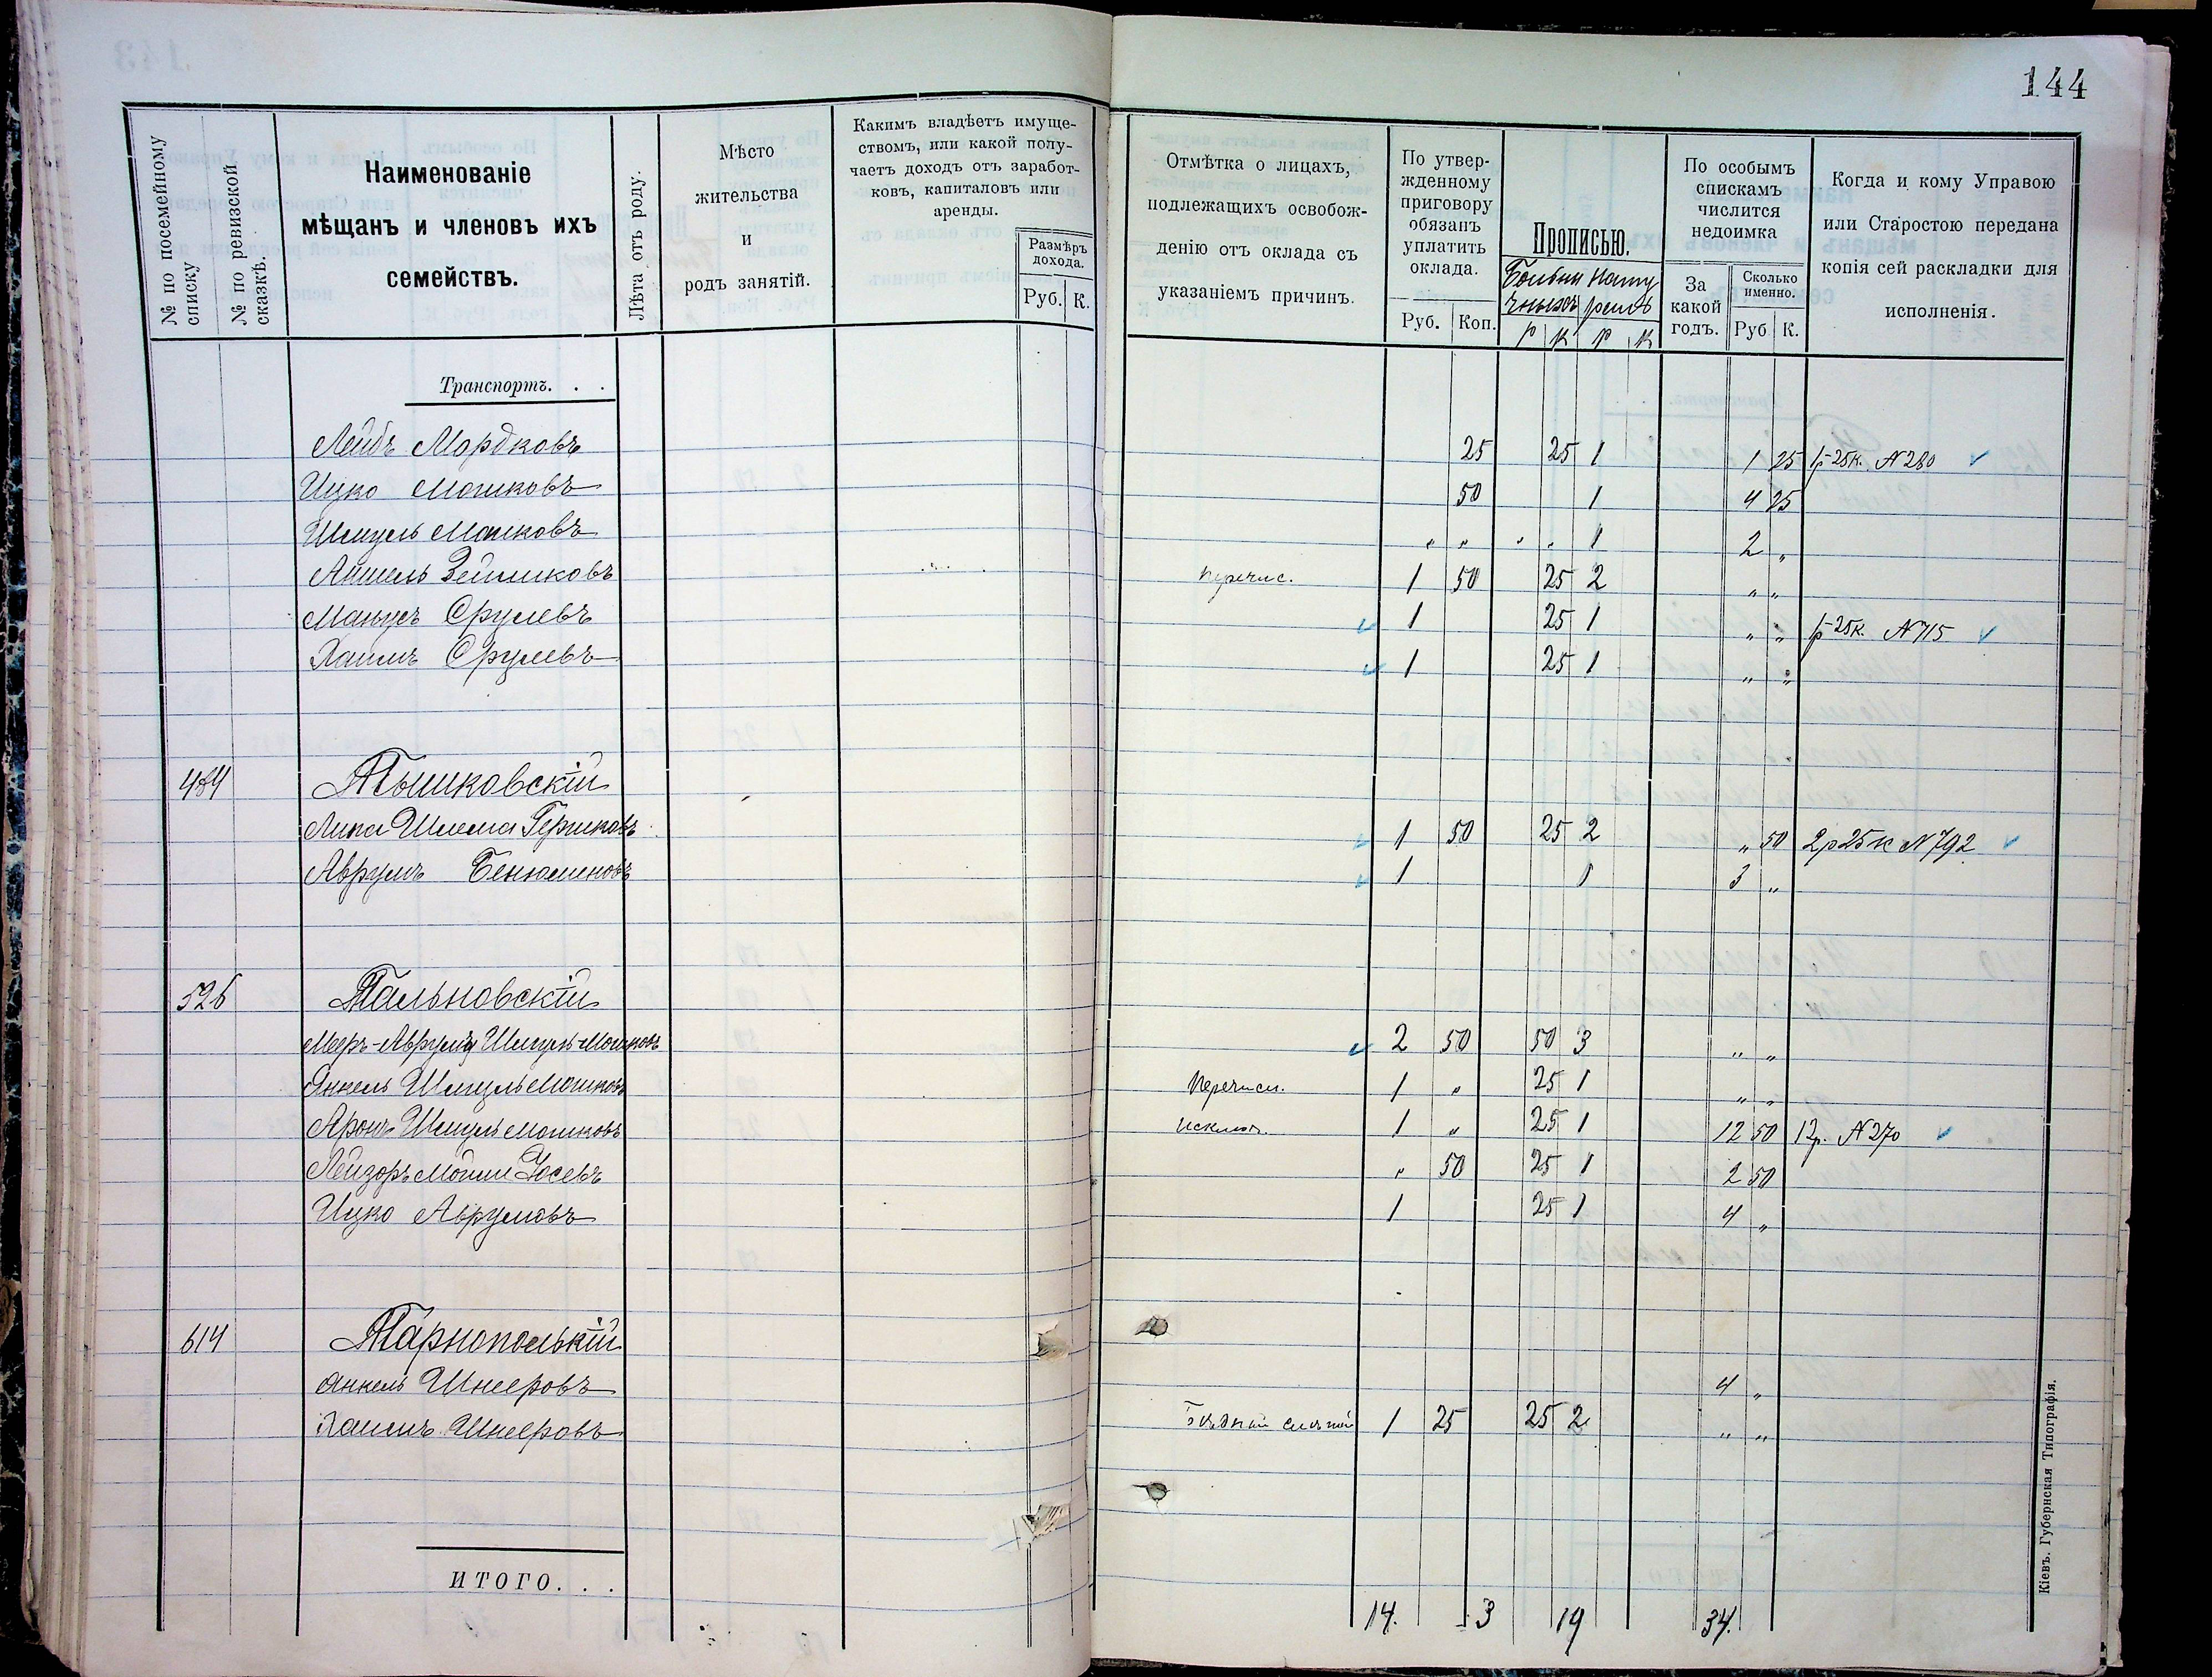 144
№ по посемейному списку
№ по ревизской сказкѣ.
Наименованіе
мѣщанъ и членовъ ихъ
семействъ.
Лѣта отъ роду.
Мѣсто
жительства
и
родъ занятій.
Какимъ владѣетъ имуще-
ствомъ, или какой полу-
чаетъ доходъ отъ заработ-
ковъ, капиталовъ или
аренды.
Размѣръ
дохода.
Руб. К.
Отмѣтка о лицахъ,
подлежащихъ освобож-
денію отъ оклада съ
указаніемъ причинъ.
По утвер-
жденному
приговору
обязанъ
уплатить
оклада.
Руб. Коп.
Прописью.
р к р к
По особымъ
спискамъ
числится
недоимка
За
какой
годъ.
Сколько
именно.
Руб К.
Когда и кому Управою
или Старостою передана
копія сей раскладки для
исполненія.
Транспортъ. . .
Лейбъ Мордковъ 25 25 1 1 25 1р 25к. № 280
Ицко Мошковъ 50 1 4 25
Шмуль Мошковъ " " " " 1 2 "
Аншель Зейликовъ перечис. 1 50 25 2 " "
Манусъ Срулевъ 1 25 1 " " 1р 25к. № 715
Хаимъ Срулевъ 1 25 1 " "
484 Тышковскій
Липа Шлема Гершковъ 1 50 25 2 " 50 2р 25к № 792
Аврумъ Бенюминовъ 1 1 3 "
526 Тальновскій
Меръ-Аврумъ Шмуль-Мошковъ 2 50 50 3 " "
Янкель Шмуль Мошковъ Перечисл. 1 " 25 1 " "
Аронъ Шмуль Мошковъ исключ. 1 " 25 1 12 50 12р. № 270
Лейзоръ Мошки Іосевъ " 50 25 1 2 50
Ицко Аврумовъ 1 25 1 4 "
614 Тарнопольскій
Янкель Шнееровъ 4 "
Хаимъ Шнееровъ Бѣдный слѣпой 1 25 25 2 " "
ИТОГО. . .
14. 3 19 34.
Кіевъ. Губернская Типографія.